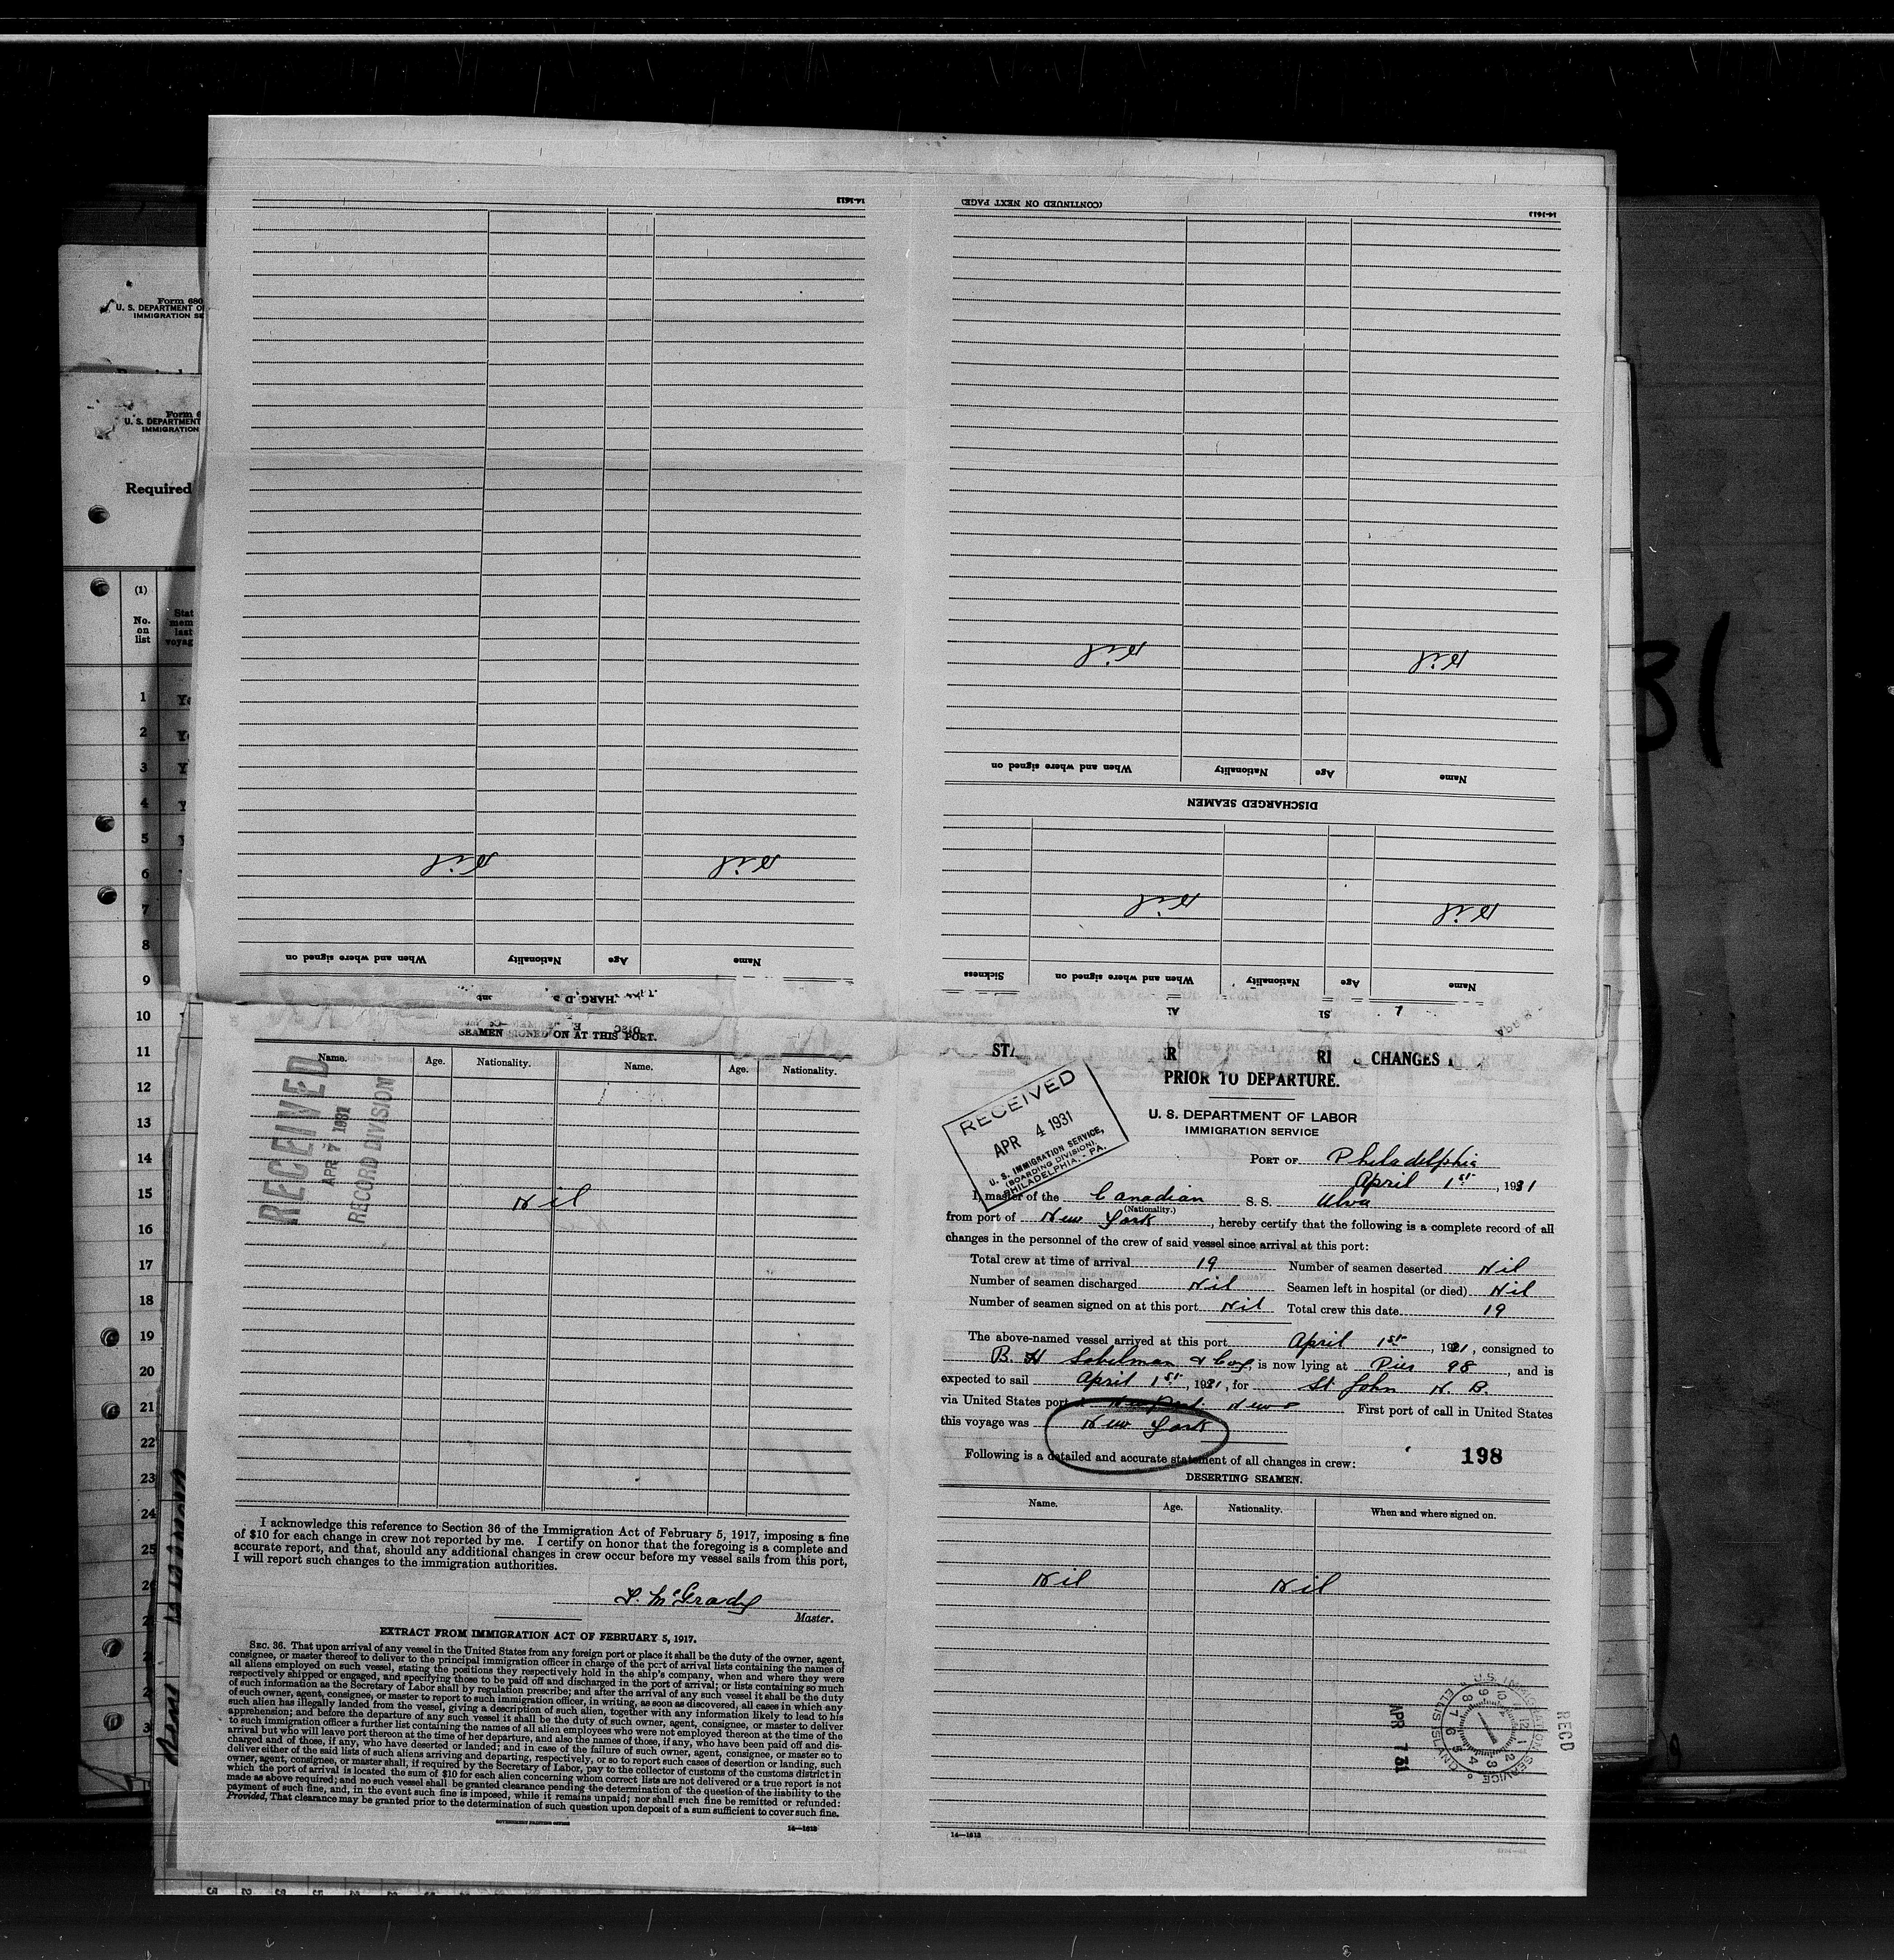 Form 680
U. S. DEPARTMENT O
IMMIGRATION SE
Form 6
U. S. DEPARTMENT
IMMIGRATION
Required
(1)
No.
on
list
Stat
mem
last
voyag
1
2
3
4
5
6
7
8
9
10
11
12
13
14
15
16
17
18
19
20
21
22
23
24
25
31
14-1613
When and where signed on Nationality Age Name
Nil Nil
14-1613
(CONTINUED ON NEXT PAGE)
Nil Nil
When and where signed on Nationality Age Name
DISCHARGED SEAMEN
Nil Nil
Sickness When and where signed on Nationality Age Name
SEAMEN SIGNED ON AT THIS PORT.
Name. Age. Nationality. Name. Age. Nationality.
RECEIVED
APR 7 1931
RECORD DIVISION
Nil
I acknowledge this reference to Section 36 of the Immigration Act of February 5, 1917, imposing a fine
of $10 for each change in crew not reported by me. I certify on honor that the foregoing is a complete and
accurate report, and that, should any additional changes in crew occur before my vessel sails from this port,
I will report such changes to the immigration authorities.
L. McGrady
Master.
EXTRACT FROM IMMIGRATION ACT OF FEBRUARY 5, 1917.
SEC. 36. That upon arrival of any vessel in the United States from any foreign port or place it shall be the duty of the owner, agent,
consignee, or master thereof to deliver to the principal immigration officer in charge of the port of arrival lists containing the names of
all aliens employed on such vessel, stating the positions they respectively hold in the ship's company, when and where they were
respectively shipped or engaged, and specifying those to be paid off and discharged in the port of arrival; or lists containing so much
of such information as the Secretary of Labor shall by regulation prescribe; and after the arrival of any such vessel it shall be the duty
of such owner, agent, consignee, or master to report to such immigration officer, in writing, as soon as discovered, all cases in which any
such alien has illegally landed from the vessel, giving a description of such alien, together with any information likely to lead to his
apprehension; and before the departure of any such vessel it shall be the duty of such owner, agent, consignee, or master to deliver
to such immigration officer a further list containing the names of all alien employees who were not employed thereon at the time of the
arrival but who will leave port thereon at the time of her departure, and also the names of those, if any, who have been paid off and dis-
charged and of those, if any, who have deserted or landed; and in case of the failure of such owner, agent, consignee, or master so to
deliver either of the said lists of such aliens arriving and departing, respectively, or so to report such cases of desertion or landing, such
owner, agent, consignee, or master shall, if required by the Secretary of Labor, pay to the collector of customs of the customs district in
which the port of arrival is located the sum of $10 for each alien concerning whom correct lists are not delivered or a true report is not
made as above required; and no such vessel shall be granted clearance pending the determination of the question of the liability to the
payment of such fine, and, in the event such fine is imposed, while it remains unpaid; nor shall such fine be remitted or refunded:
Provided, That clearance may be granted prior to the determination of such question upon deposit of a sum sufficient to cover such fine.
GOVERNMENT PRINTING OFFICE
14-1613
CHANGES
PRIOR TO DEPARTURE.
RECEIVED
APR 4 1931
U. S. IMMIGRATION SERVICE,
(BOARDING DIVISION).
PHILADELPHIA, - PA.
U. S. DEPARTMENT OF LABOR
IMMIGRATION SERVICE
PORT OF Philadelphia
April 1st, 1931
I, master of the Canadian S. S. Ulva
(Nationality.)
from port of New York, hereby certify that the following is a complete record of all
changes in the personnel of the crew of said vessel since arrival at this port:
Total crew at time of arrival 19 Number of seamen deserted Nil
Number of seamen discharged Nil Seamen left in hospital (or died) Nil
Number of seamen signed on at this port Nil Total crew this date 19
The above-named vessel arrived at this port April 1st, 1931, consigned to
B. H Sobelman & Coy, is now lying at Pier 98, and is
expected to sail April 1st, 1931, for St John N. B.
via United States port of Newport News First port of call in United States
this voyage was New York
Following is a detailed and accurate statement of all changes in crew:
198
DESERTING SEAMEN.
Name. Age. Nationality. When and where signed on.
Nil Nil
U.S. IMMIGRATION SERVICE
ELLIS ISLAND
RECD
APR 7 31
14-1613